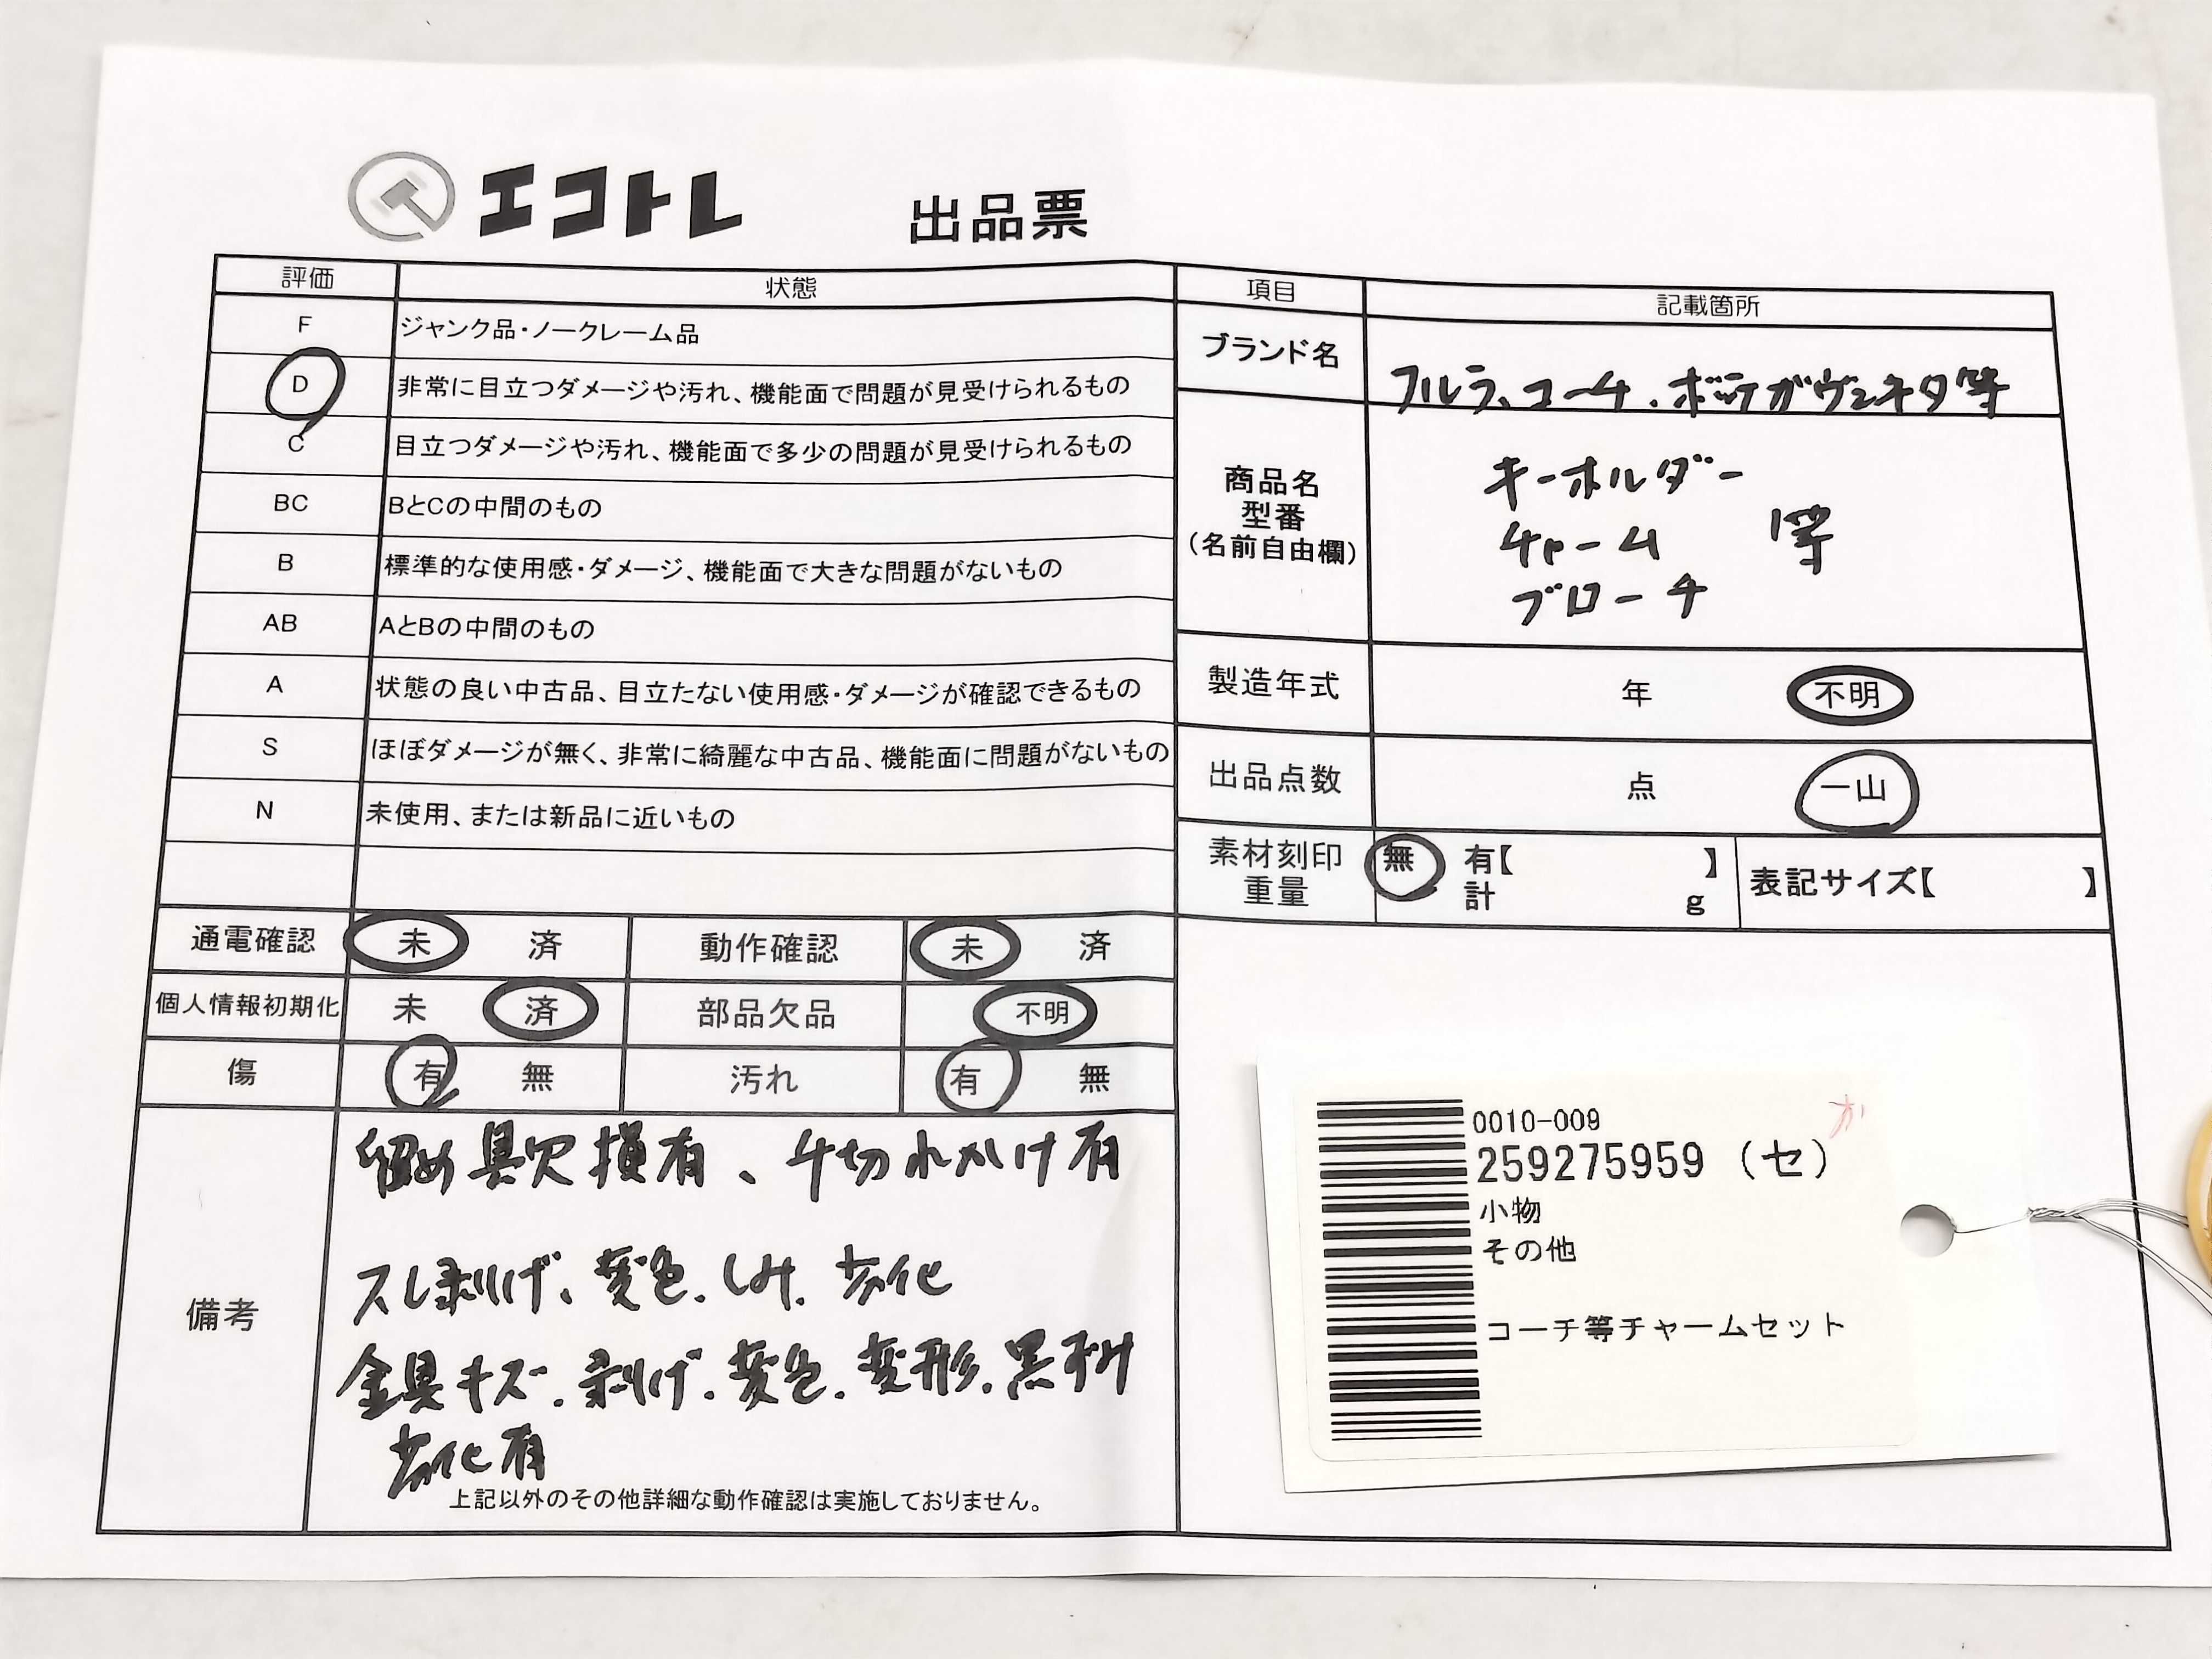 エコトレ 出品票
評価 状態
F ジャンク品・ノークレーム品
D 非常に目立つダメージや汚れ、機能面で問題が見受けられるもの
C 目立つダメージや汚れ、機能面で多少の問題が見受けられるもの
BC BとCの中間のもの
B 標準的な使用感・ダメージ、機能面で大きな問題がないもの
AB AとBの中間のもの
A 状態の良い中古品、目立たない使用感・ダメージが確認できるもの
S ほぼダメージが無く、非常に綺麗な中古品、機能面に問題がないもの
N 未使用、または新品に近いもの
通電確認 未 済 動作確認 未 済
個人情報初期化 未 済 部品欠品 不明
傷 有 無 汚れ 有 無
備考
留め具欠損有、千切れかけ有
スレ剥げ、変色、しみ、劣化
金具キズ、剥げ、変色、変形、黒ずみ
劣化有
上記以外のその他詳細な動作確認は実施しておりません。
項目 記載箇所
ブランド名 フルラ、コーチ、ボッテガヴェネタ等
商品名
型番
(名前自由欄)
キーホルダー
チャーム 等
ブローチ
製造年式 年 不明
出品点数 点 一山
素材刻印 無 有【 】
重量 計 g
表記サイズ【 】
0010-009
か
259275959 (セ)
小物
その他
コーチ等チャームセット